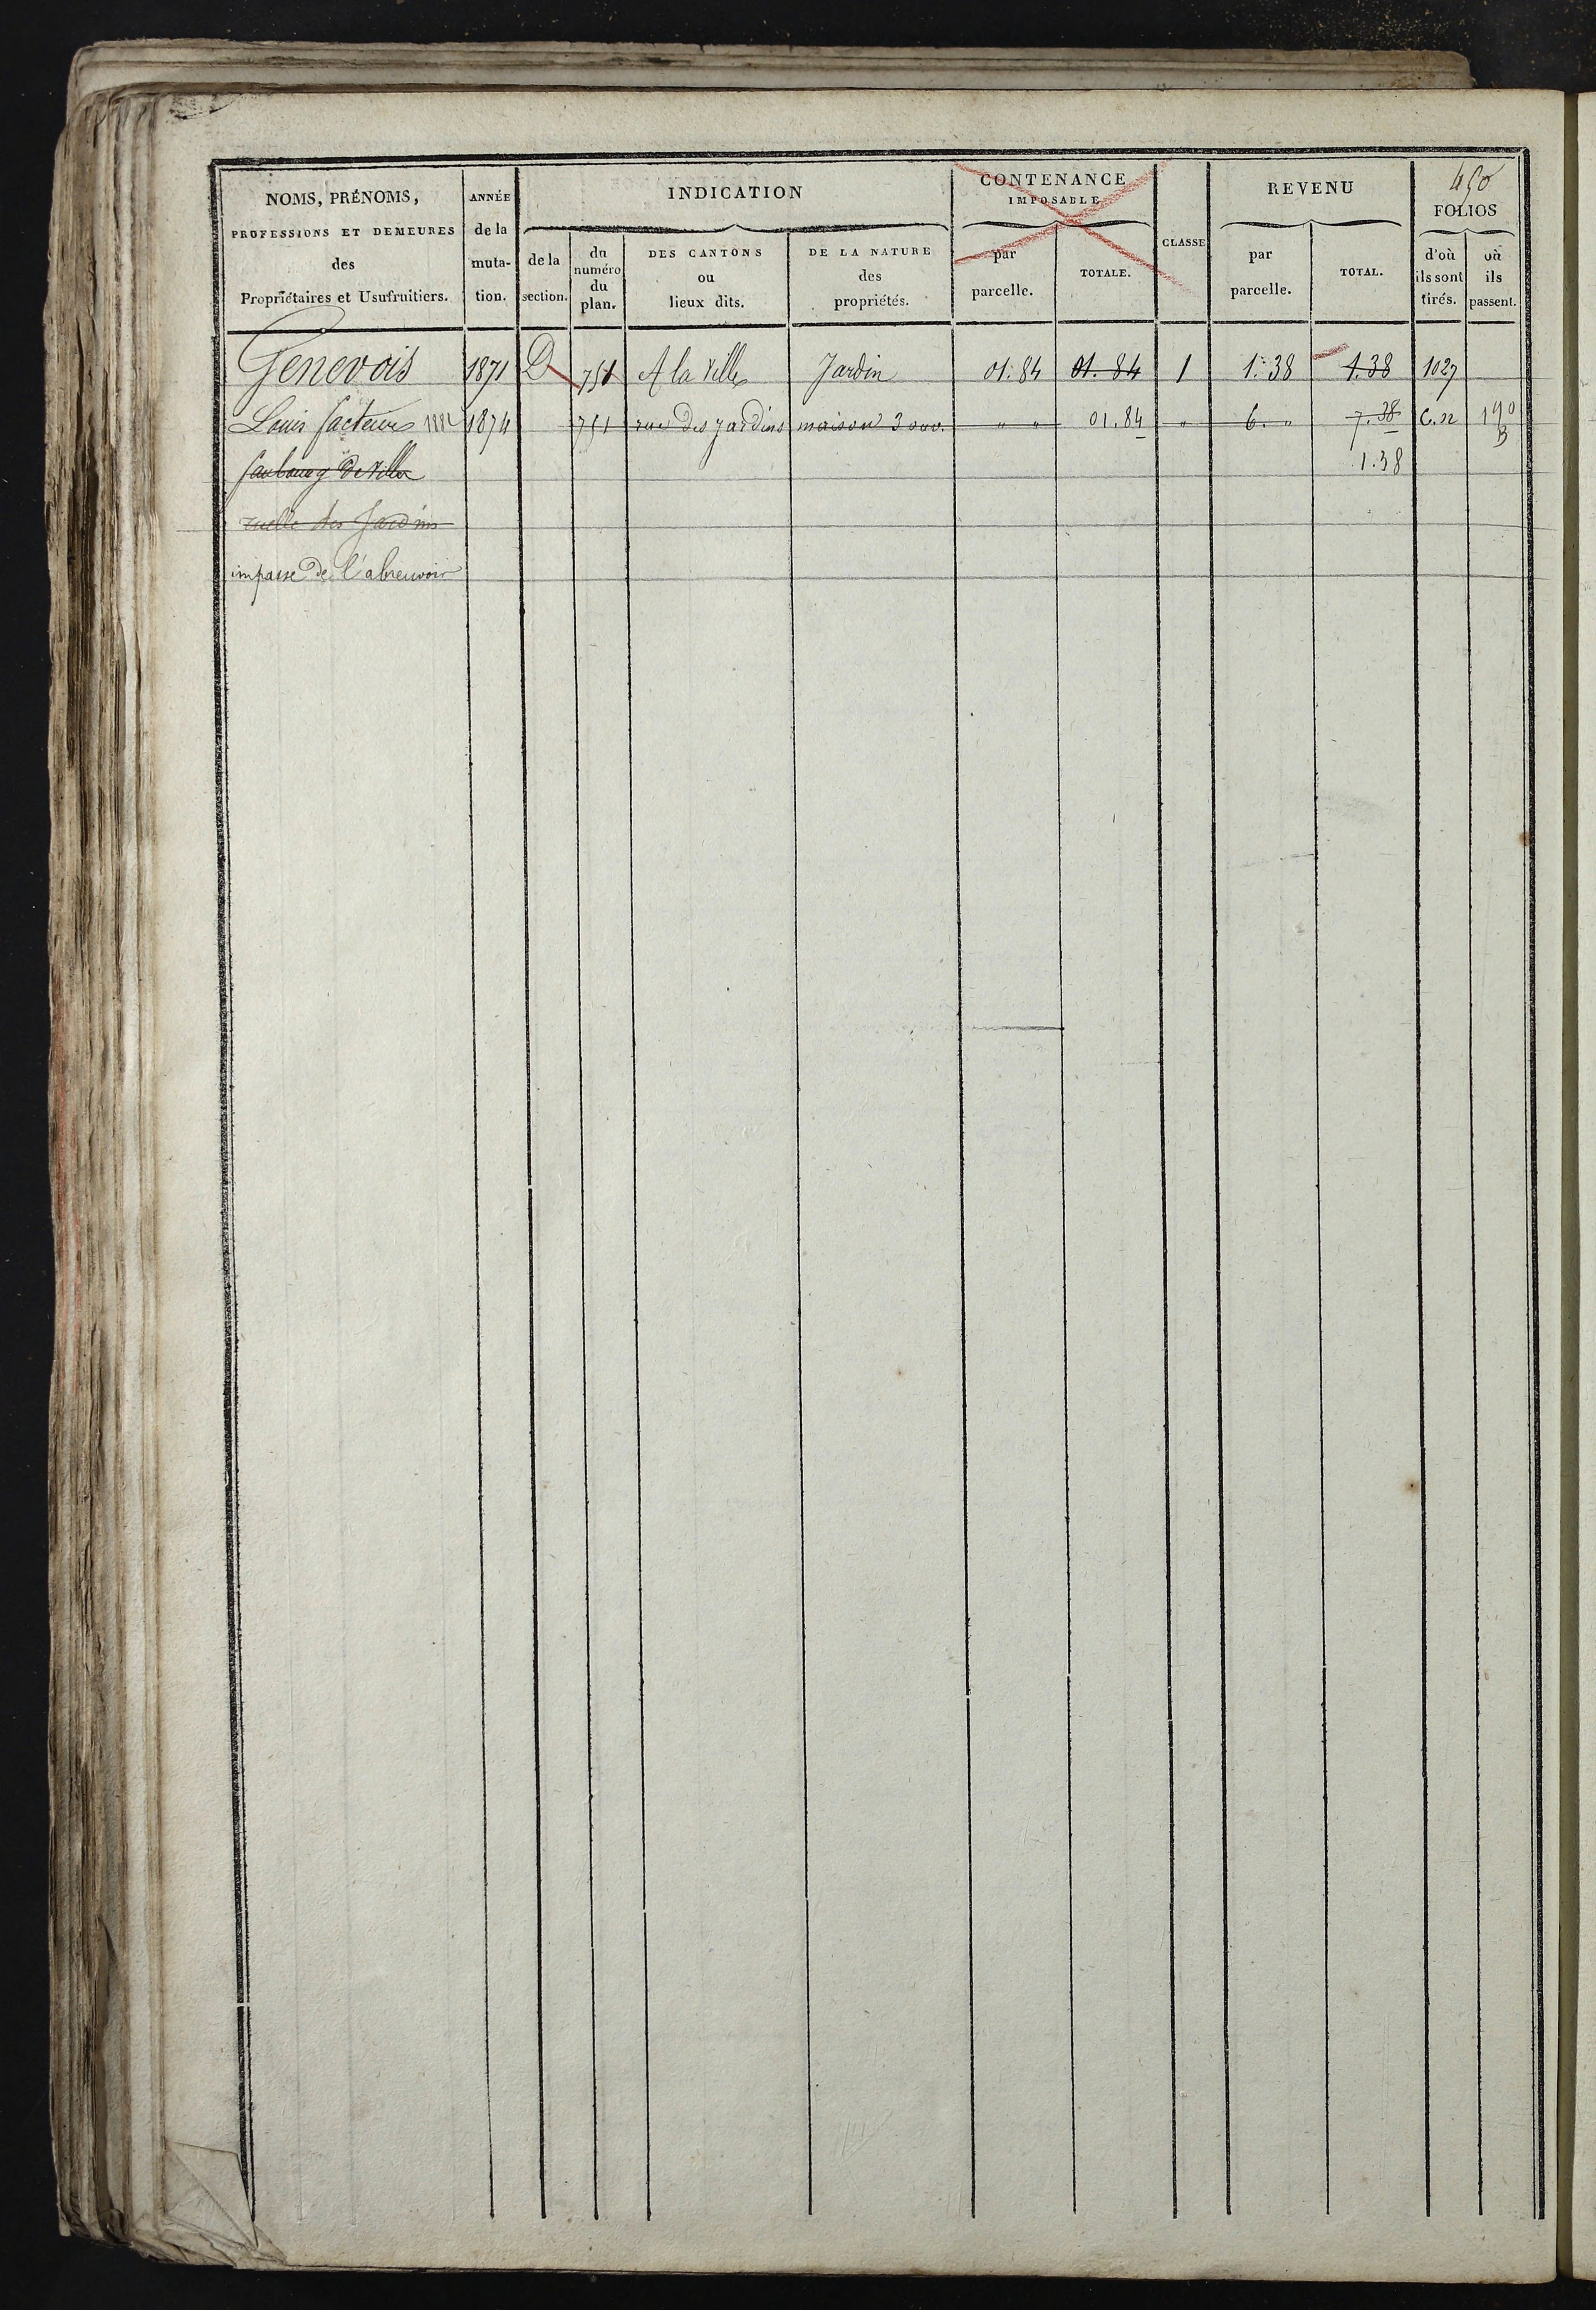 450
NOMS, PRÉNOMS, PROFESSIONS ET DEMEURES des Propriétaires et Usufruitiers.
ANNÉE de la muta-tion.
INDICATION
de la section.
du numéro du plan.
DES CANTONS ou lieux dits.
DE LA NATURE des propriétés.
CONTENANCE IMPOSABLE
par parcelle.
TOTALE.
CLASSE
REVENU
par parcelle.
TOTAL.
FOLIOS
d'où ils sont tirés.
où ils passent.
Genevois 1871 D 751 A la Ville Jardin 01.84 01.84 1 1.38 1.38 1027
Louis facteur 1882 1874 751 rue des Jardins maison 3 ouv. " " 01.84 " 6. " 7.38 C.n 190 B
faubourg de Ville 1.38
ruelle des Jardins
impasse de l'abreuvoir